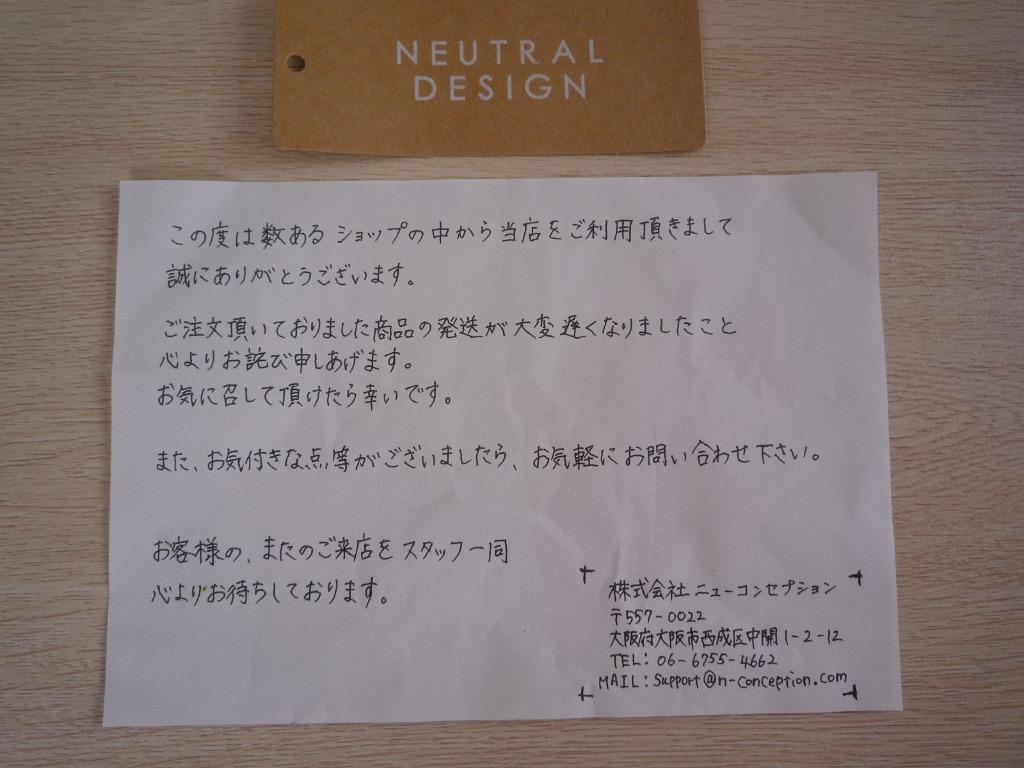 NEUTRAL
DESIGN
この度は数あるショップの中から当店をご利用頂きまして
誠にありがとうございます。
ご注文頂いておりました商品の発送が大変遅くなりましたこと
心よりお詫び申しあげます。
お気に召して頂けたら幸いです。
また、お気付きな点等がございましたら、お気軽にお問い合わせ下さい。
お客様の、またのご来店をスタッフ一同
心よりお待ちしております。
株式会社ニューコンセプション
〒557-0022
大阪府大阪市西成区中開1-2-12
TEL: 06-6755-4662
MAIL: support@n-conception.com